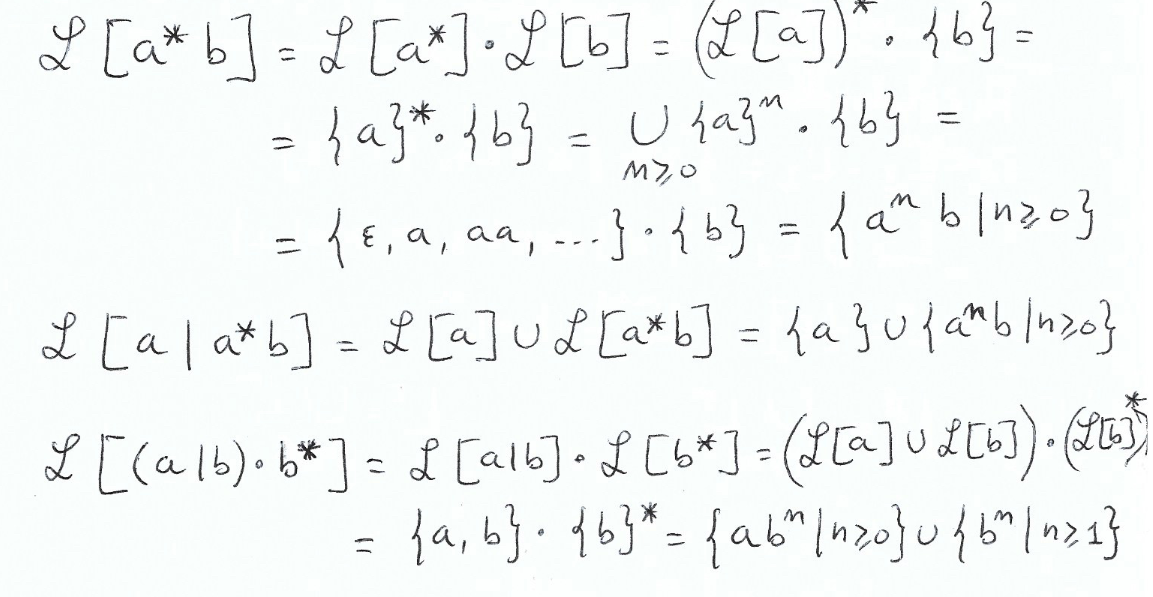 ℒ[a* b] = ℒ[a*]·ℒ[b] = (ℒ[a])* · {b} =
= {a}*·{b} = ∪ {a}ⁿ · {b} =
n≥0
= {ε, a, aa, ...}·{b} = {aⁿ b | n≥0}
ℒ[a | a*b] = ℒ[a] ∪ ℒ[a*b] = {a} ∪ {aⁿb | n≥0}
ℒ[(a|b)·b*] = ℒ[a|b]·ℒ[b*] = (ℒ[a] ∪ ℒ[b])·(ℒ[b])*
= {a, b}·{b}* = {abⁿ | n≥0} ∪ {bⁿ | n≥1}